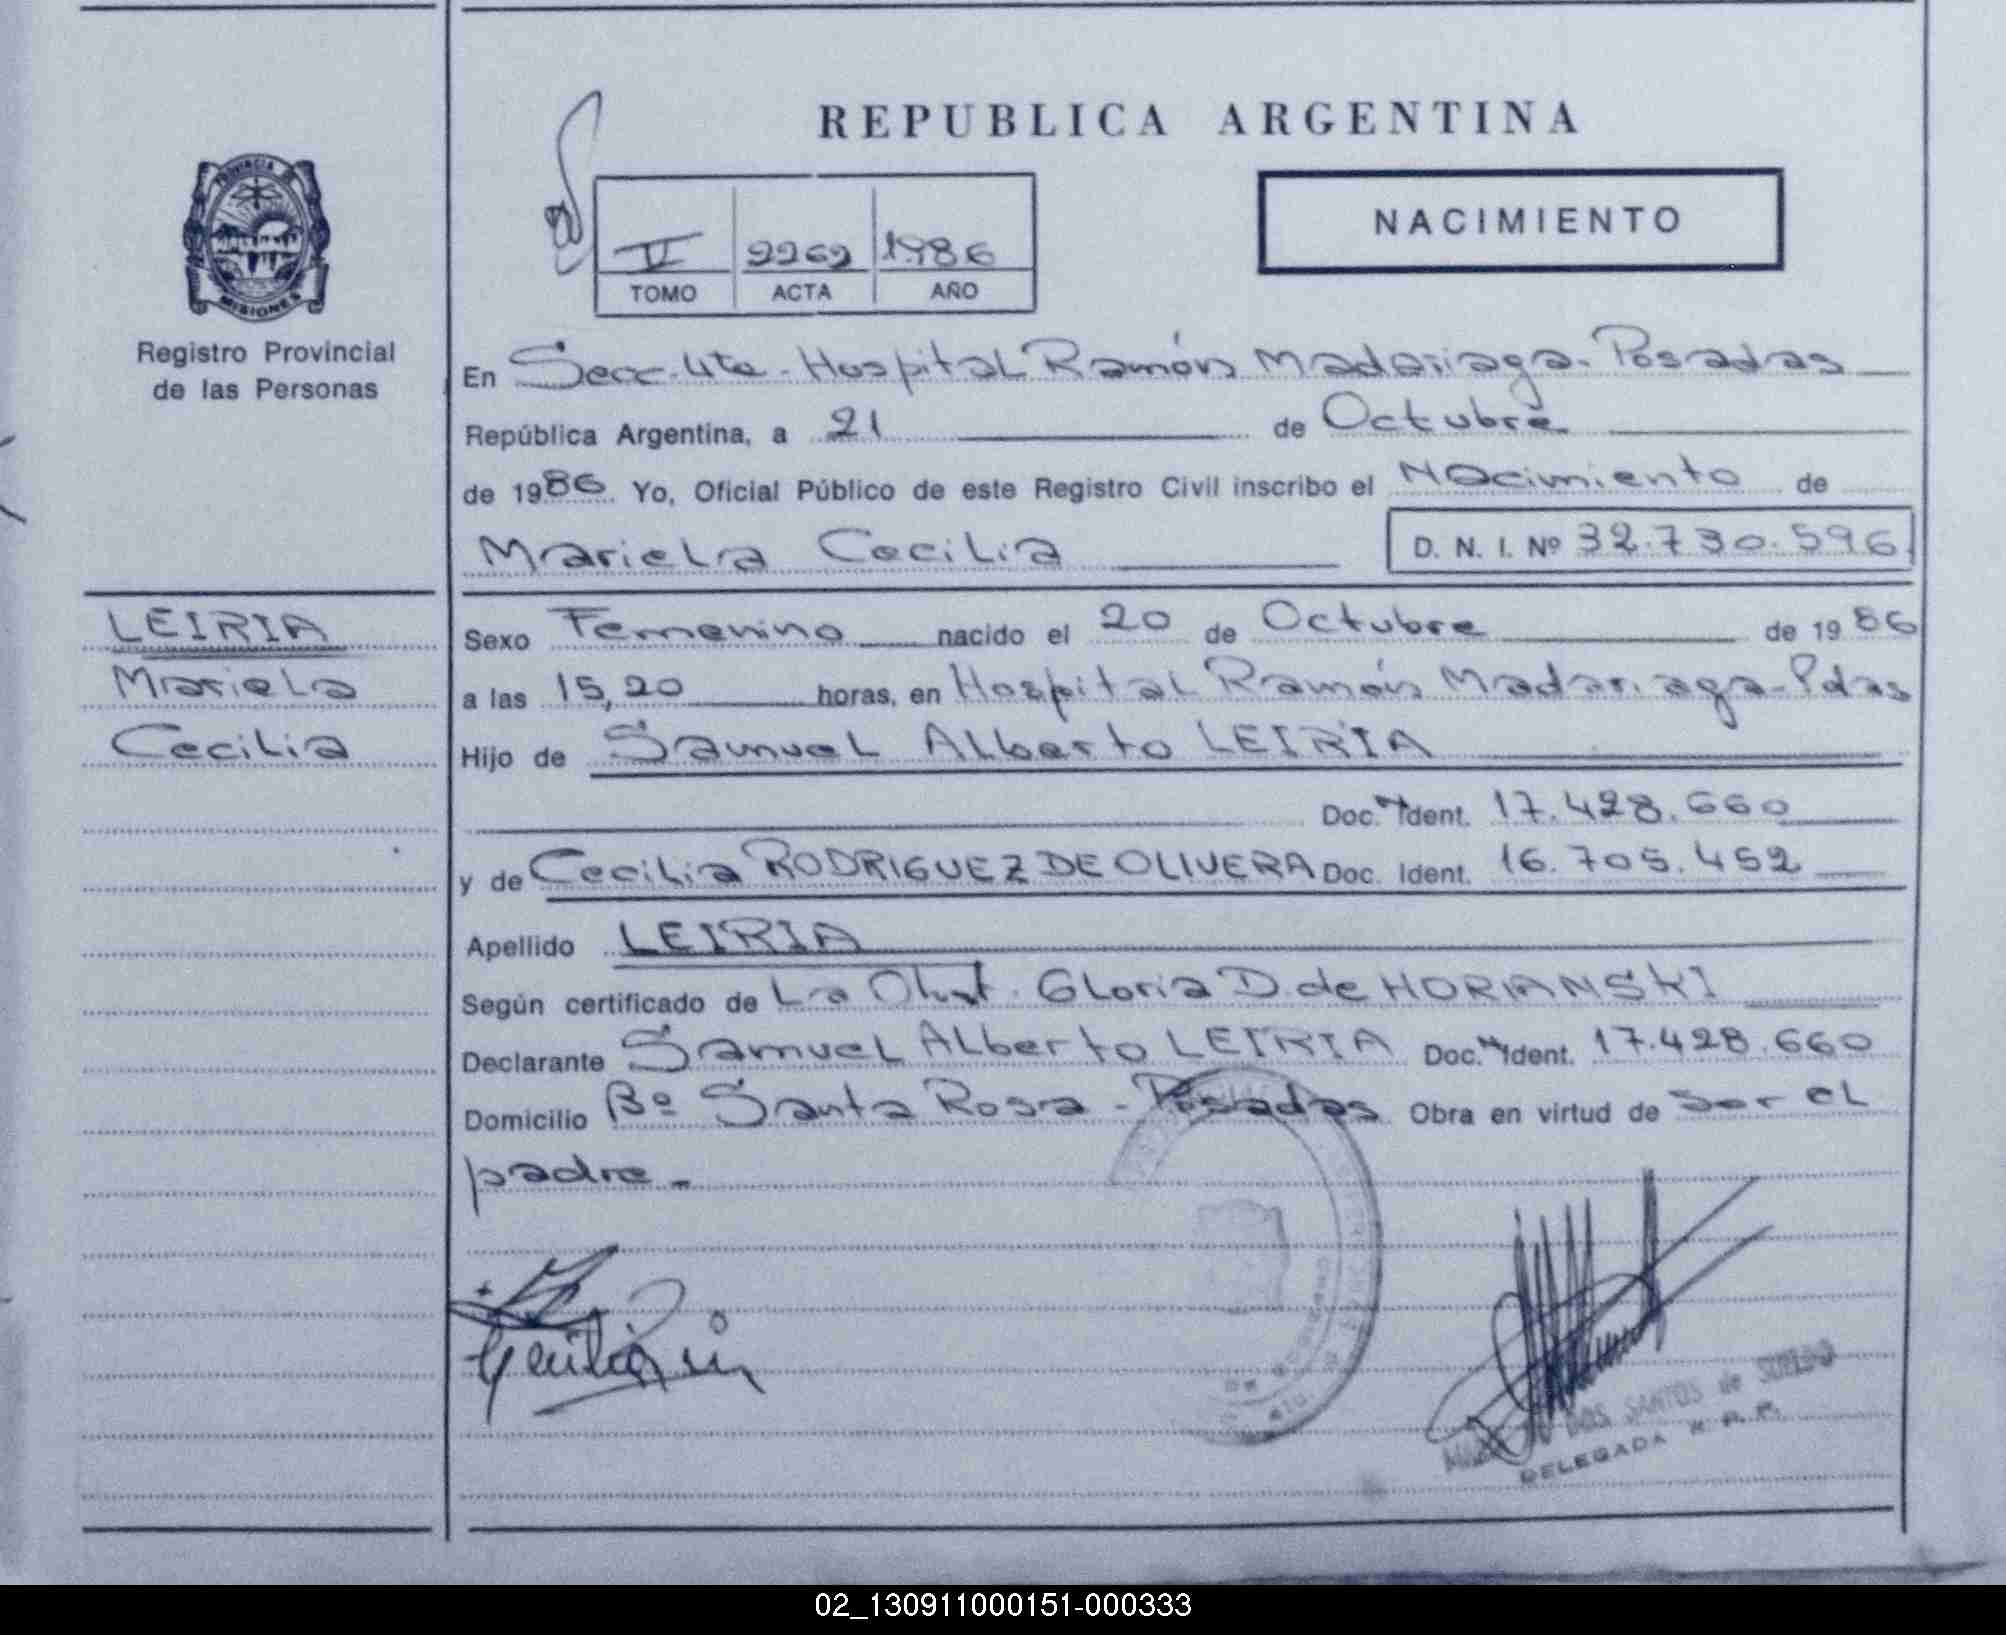 REPUBLICA ARGENTINA
PROVINCIA DE
MISIONES
Registro Provincial
de las Personas
NACIMIENTO
II 2262 1986
TOMO ACTA AÑO
En Secc. 4ta. Hospital Ramón Madariaga - Posadas
República Argentina, a 21 de Octubre
de 1986 Yo, Oficial Público de este Registro Civil inscribo el Nacimiento de
Mariela Cecilia D. N. I. Nº 32.730.596
LEIRIA
Mariela
Cecilia
Sexo Femenino nacido el 20 de Octubre de 1986
a las 15,20 horas, en Hospital Ramón Madariaga - Pdas
Hijo de Samuel Alberto LEIRIA
Doc. Ident. 17.428.660
y de Cecilia RODRIGUEZ DE OLIVERA Doc. Ident. 16.705.452
Apellido LEIRIA
Según certificado de La Obst. Gloria D. de HORIANSKI
Declarante Samuel Alberto LEIRIA Doc. Ident. 17.428.660
Domicilio Bº Santa Rosa - Posadas Obra en virtud de ser el
padre.-
DOS SANTOS de SUELDO
DELEGADA R. P. P.
02_130911000151-000333